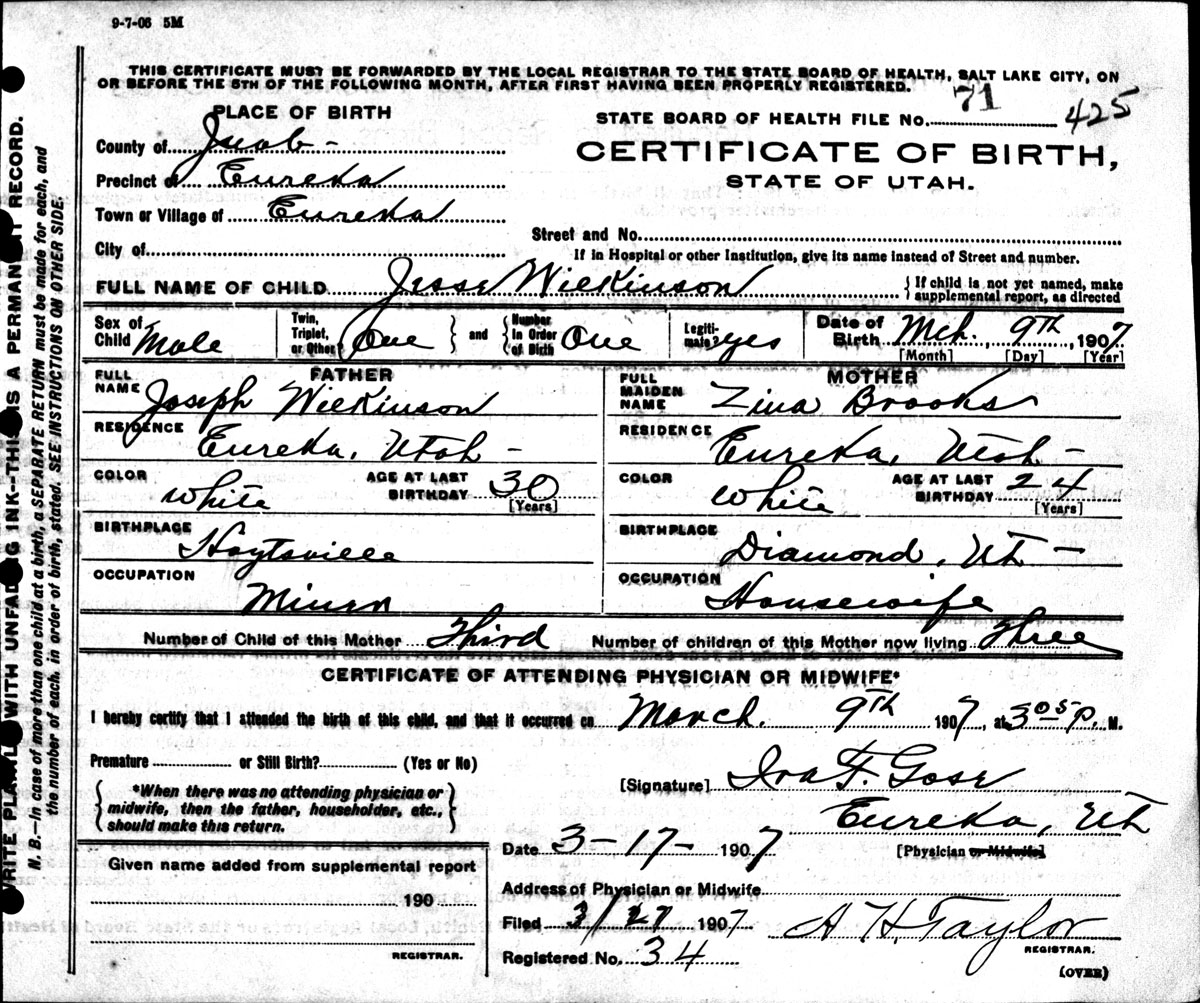 9-7-06 5M
THIS CERTIFICATE MUST BE FORWARDED BY THE LOCAL REGISTRAR TO THE STATE BOARD OF HEALTH, SALT LAKE CITY, ON
OR BEFORE THE 5TH OF THE FOLLOWING MONTH, AFTER FIRST HAVING BEEN PROPERLY REGISTERED.
PLACE OF BIRTH
STATE BOARD OF HEALTH FILE NO. 71 425
County of Juab -
CERTIFICATE OF BIRTH,
Precinct of Eureka
STATE OF UTAH.
Town or Village of Eureka
Street and No.
City of
If in Hospital or other Institution, give its name instead of Street and number.
FULL NAME OF CHILD Jesse Wilkinson { If child is not yet named, make
supplemental report, as directed
Sex of Child Male
Twin, Triplet, or Other? One } and { Number in Order of Birth One
Legitimate? yes
Date of Birth Mch. 9th, 1907.
[Month] [Day] [Year]
FATHER
FULL NAME Joseph Wilkinson
MOTHER
FULL MAIDEN NAME Zina Brooks
RESIDENCE Eureka, Utah -
RESIDENCE Eureka, Utah -
COLOR White AGE AT LAST BIRTHDAY 30 [Years]
COLOR White AGE AT LAST BIRTHDAY 24 [Years]
BIRTHPLACE Hoytsville
BIRTHPLACE Diamond, Ut -
OCCUPATION Miner
OCCUPATION Housewife
Number of Child of this Mother Third Number of children of this Mother now living Three
CERTIFICATE OF ATTENDING PHYSICIAN OR MIDWIFE*
I hereby certify that I attended the birth of this child, and that it occurred on March. 9th 1907, at 3 05 P. M.
Premature or Still Birth? (Yes or No)
[Signature] Ira F. Gose
{ *When there was no attending physician or
midwife, then the father, householder, etc.,
should make this return. }
Eureka, Ut
Date 3-17-1907 [Physician or Midwife]
Given name added from supplemental report
190
REGISTRAR.
Address of Physician or Midwife
Filed 3/27 1907 A H Taylor
REGISTRAR.
Registered No. 34
(OVER)
WRITE PLAINLY WITH UNFADING INK--THIS IS A PERMANENT RECORD.
N. B.—In case of more than one child at a birth, a SEPARATE RETURN must be made for each, and
the number of each, in order of birth, stated. SEE INSTRUCTIONS ON OTHER SIDE.